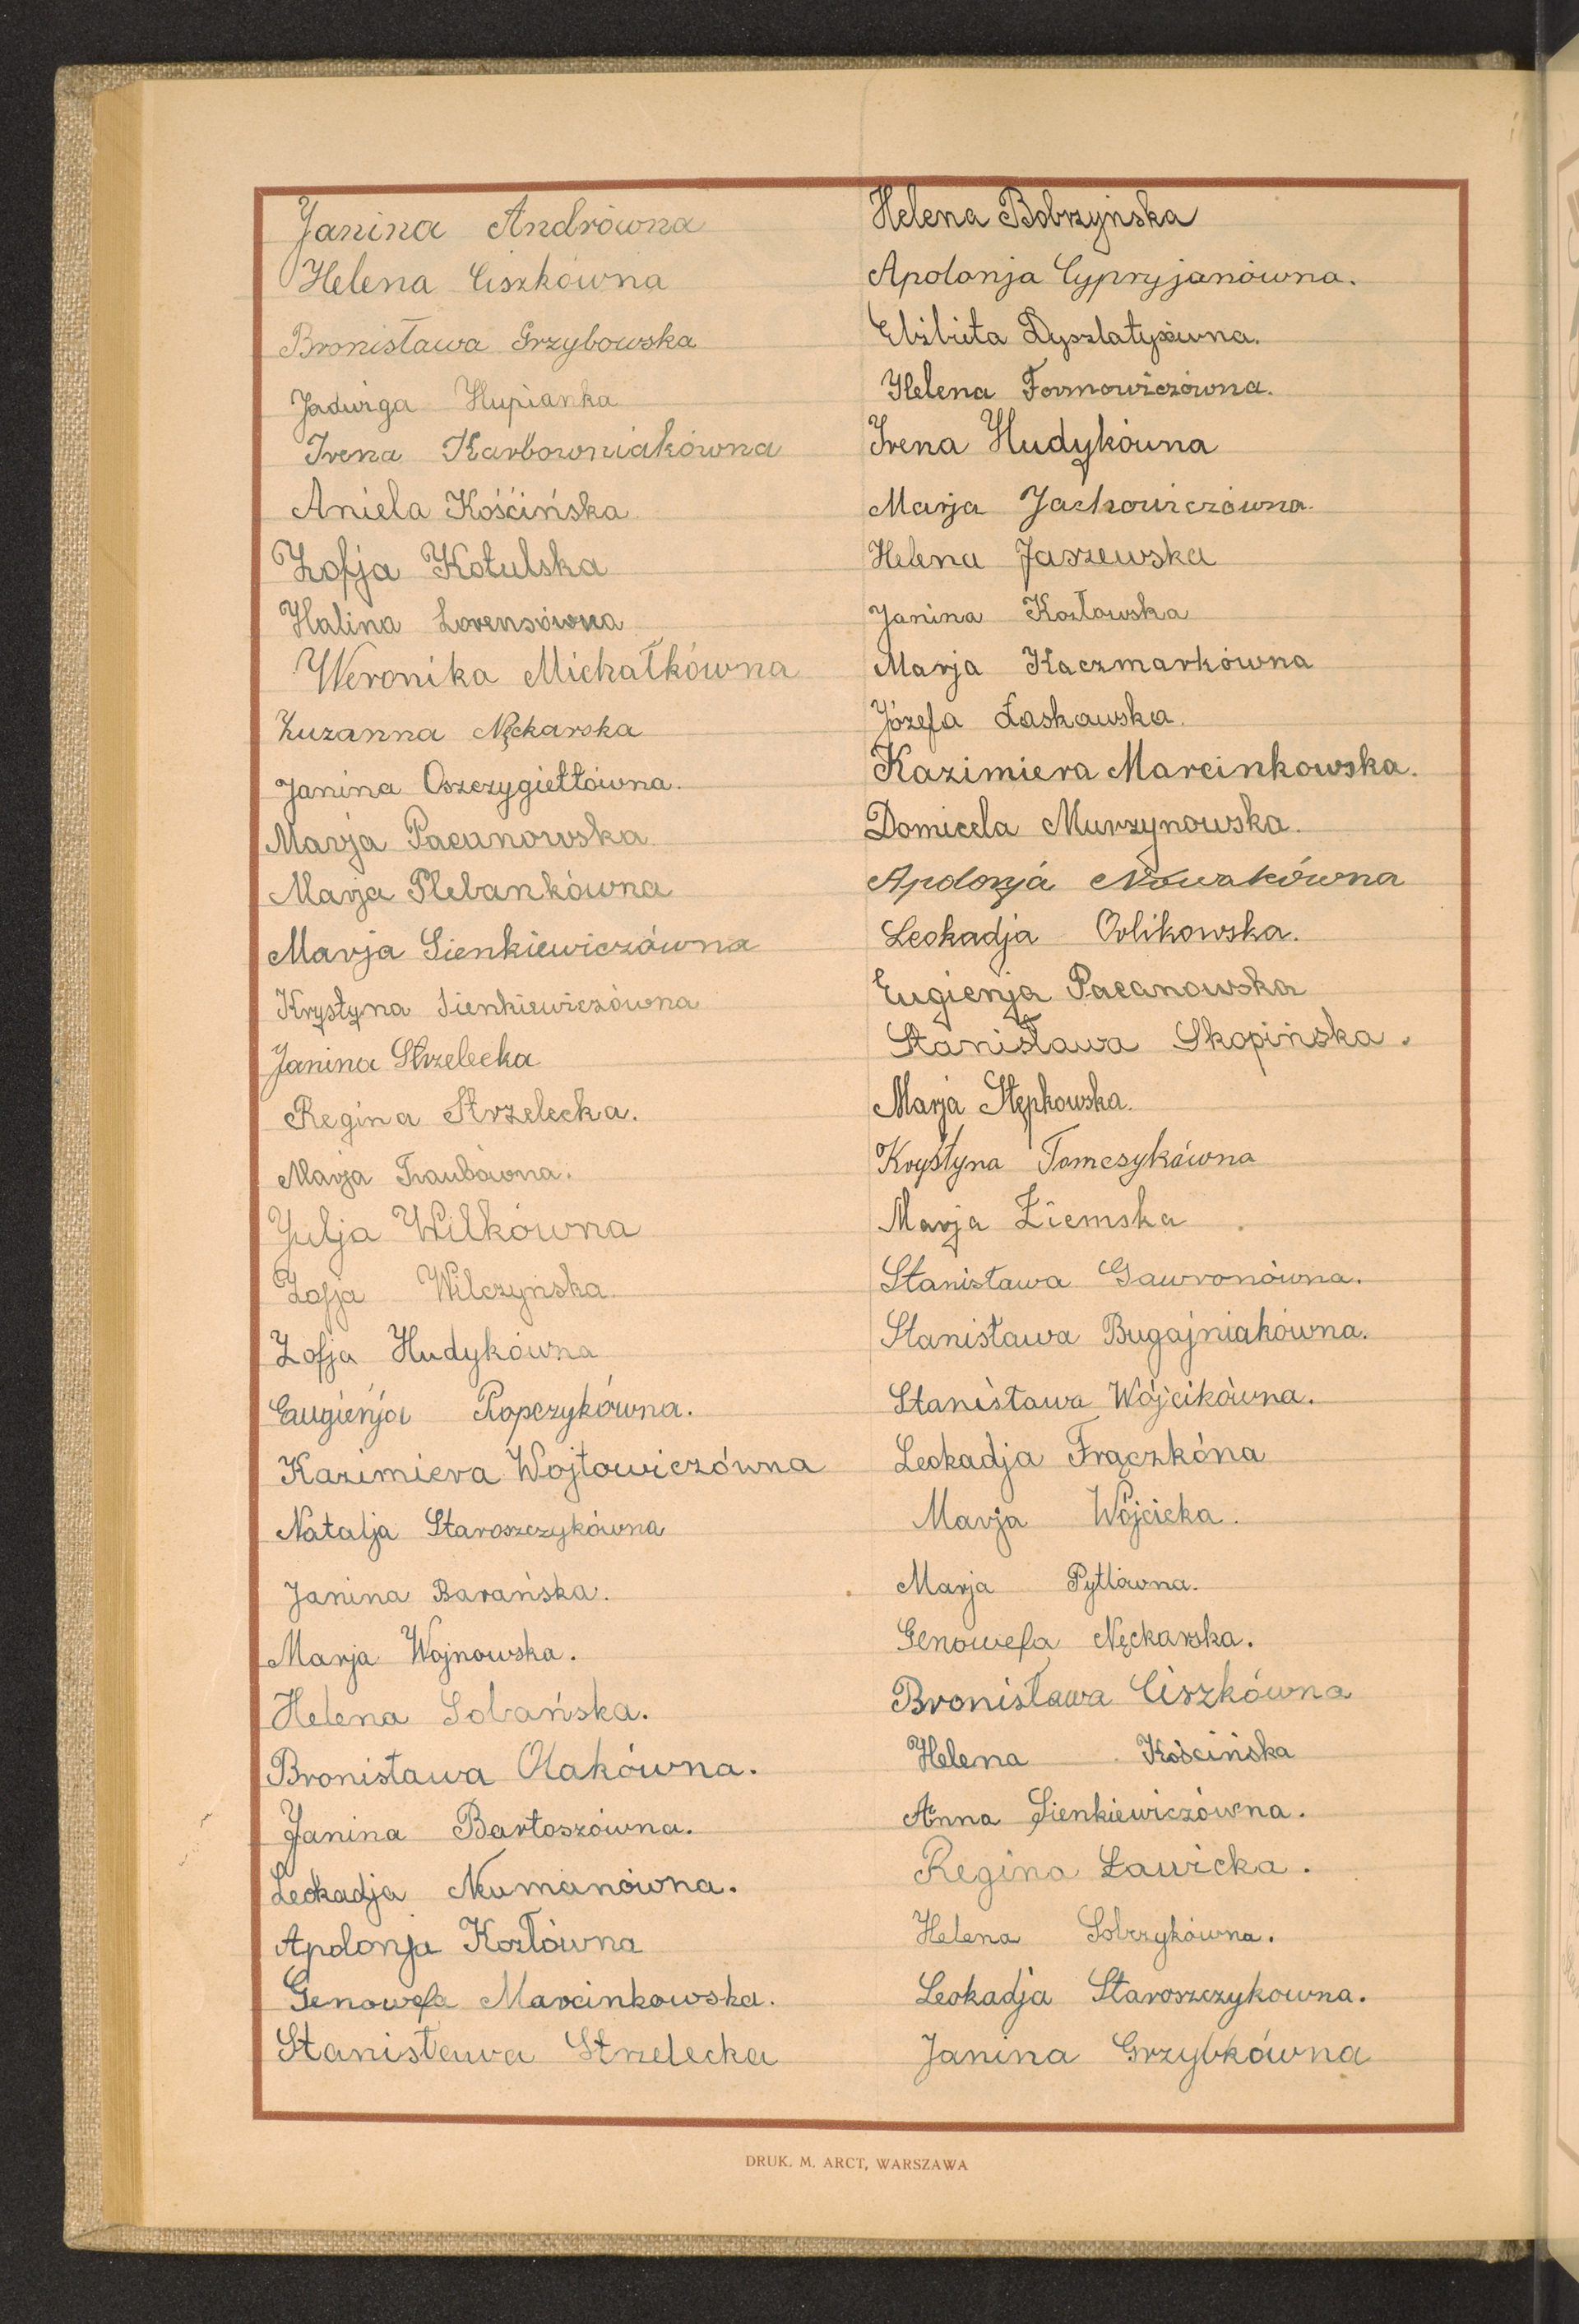 Janina Andrówna
Helena Ciszkówna
Bronisława Grzybowska
Jadwiga Hupianka
Irena Karbowniakówna
Aniela Kościńska
Zofja Kotulska
Halina Lorensówna
Weronika Michałkówna
Zuzanna Nęckarska
Janina Oszczygiełłówna.
Marja Pacanowska
Marja Plebankówna
Marja Sienkiewiczówna
Krystyna Sienkiewiczówna
Janina Strzelecka
Regina Strzelecka.
Marja Traubówna.
Julja Wilkówna
Zofja Wilczyńska
Zofja Hudykówna
Eugienja Ropczykówna.
Kazimiera Wojtowiczówna
Natalja Staroszczykówna
Janina Barańska.
Marja Wojnowska.
Helena Sobańska.
Bronisława Olakówna.
Janina Bartoszówna.
Leokadja Neumanówna.
Apolonja Kozłówna
Genowefa Marcinkowska.
Stanisława Strzelecka
Helena Bobrzyńska
Apolonja Cypryjanówna.
Elżbieta
Helena Formowiczówna.
Irena Hudykówna
Marja Jachowiczówna.
Helena Jaszewska
Janina Kozłowska
Marja Kaczmarkówna
Józefa Łaskawska.
Kazimiera Marcinkowska.
Domicela Murzynowska.
Apolonja Nowakówna
Leokadja Orlikowska.
Eugienja Pacanowska
Stanisława Skopińska.
Marja Stępkowska.
Krystyna Tomczykówna
Marja Ziemska
Stanisława Gawronówna.
Stanisława Bugajniakówna.
Stanisława Wójcikówna.
Leokadja Frączkóna
Marja Wójcicka.
Marja Pytlówna.
Genowefa Nęckarska.
Bronisława Ciszkówna
Helena Kościńska
Anna Sienkiewiczówna.
Regina Ławicka.
Helena Sobczykówna.
Leokadja Staroszczykowna.
Janina Grzybkówna
DRUK. M. ARCT, WARSZAWA